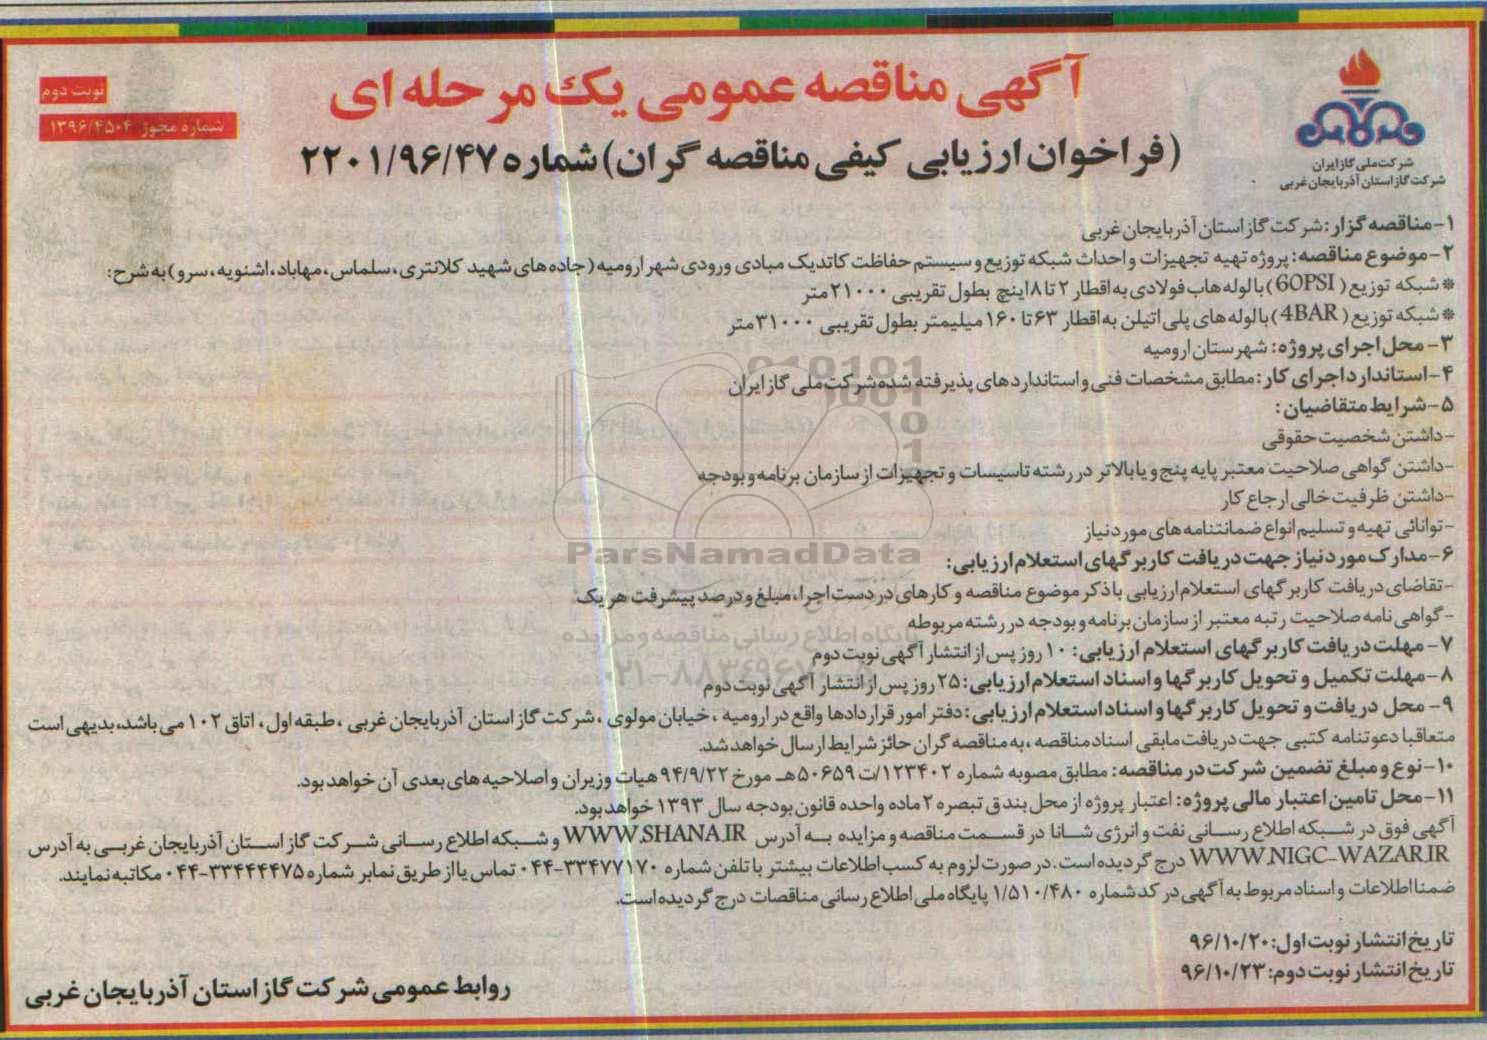 نوبت دوم
شماره مجوز ۱۳۹۶/۴۵۰۴
آگهی مناقصه عمومی یک مرحله ای
(فراخوان ارزیابی کیفی مناقصه گران) شماره ۲۲۰۱/۹۶/۴۷
شرکت ملی گاز ایران
شرکت گاز استان آذربایجان غربی
۱- مناقصه گزار: شرکت گاز استان آذربایجان غربی
۲- موضوع مناقصه: پروژه تهیه تجهیزات و احداث شبکه توزیع و سیستم حفاظت کاتدیک مبادی ورودی شهر ارومیه (جاده های شهید کلانتری، سلماس، مهاباد، اشنویه، سرو) به شرح:
* شبکه توزیع (60PSI) با لوله هاب فولادی به اقطار ۲ تا ۸ اینچ بطول تقریبی ۲۱۰۰۰ متر
* شبکه توزیع (4BAR) با لوله های پلی اتیلن به اقطار ۶۳ تا ۱۶۰ میلیمتر بطول تقریبی ۳۱۰۰۰ متر
۳- محل اجرای پروژه: شهرستان ارومیه
۴- استاندارد اجرای کار: مطابق مشخصات فنی و استانداردهای پذیرفته شده شرکت ملی گاز ایران
۵- شرایط متقاضیان:
- داشتن شخصیت حقوقی
- داشتن گواهی صلاحیت معتبر پایه پنج و یا بالاتر در رشته تاسیسات و تجهیزات از سازمان برنامه و بودجه
- داشتن ظرفیت خالی ارجاع کار
- توانائی تهیه و تسلیم انواع ضمانتنامه های مورد نیاز
۶- مدارک مورد نیاز جهت دریافت کاربرگهای استعلام ارزیابی:
- تقاضای دریافت کاربرگهای استعلام ارزیابی با ذکر موضوع مناقصه و کارهای در دست اجرا، مبلغ و درصد پیشرفت هر یک
- گواهی نامه صلاحیت رتبه معتبر از سازمان برنامه و بودجه در رشته مربوطه
۷- مهلت دریافت کاربرگهای استعلام ارزیابی: ۱۰ روز پس از انتشار آگهی نوبت دوم
۸- مهلت تکمیل و تحویل کاربرگها و اسناد استعلام ارزیابی: ۲۵ روز پس از انتشار آگهی نوبت دوم
۹- محل دریافت و تحویل کاربرگها و اسناد استعلام ارزیابی: دفتر امور قراردادها واقع در ارومیه، خیابان مولوی، شرکت گاز استان آذربایجان غربی، طبقه اول، اتاق ۱۰۲ می باشد، بدیهی است
متعاقبا دعوتنامه کتبی جهت دریافت مابقی اسناد مناقصه، به مناقصه گران حائز شرایط ارسال خواهد شد.
۱۰- نوع و مبلغ تضمین شرکت در مناقصه: مطابق مصوبه شماره ۱۲۳۴۰۲/ت۵۰۶۵۹هـ مورخ ۹۴/۹/۲۲ هیات وزیران و اصلاحیه های بعدی آن خواهد بود.
۱۱- محل تامین اعتبار مالی پروژه: اعتبار پروژه از محل بند ق تبصره ۲ ماده واحده قانون بودجه سال ۱۳۹۳ خواهد بود.
آگهی فوق در شبکه اطلاع رسانی نفت و انرژی شانا در قسمت مناقصه و مزایده به آدرس WWW.SHANA.IR و شبکه اطلاع رسانی شرکت گاز استان آذربایجان غربی به آدرس
WWW.NIGC-WAZAR.IR درج گردیده است. در صورت لزوم به کسب اطلاعات بیشتر با تلفن شماره ۳۳۴۷۷۱۷۰-۰۴۴ تماس یا از طریق نمابر شماره ۳۳۴۴۴۴۷۵-۰۴۴ مکاتبه نمایند.
ضمنا اطلاعات و اسناد مربوط به آگهی در کد شماره ۱/۵۱۰/۴۸۰ پایگاه ملی اطلاع رسانی مناقصات درج گردیده است.
تاریخ انتشار نوبت اول: ۹۶/۱۰/۲۰
تاریخ انتشار نوبت دوم: ۹۶/۱۰/۲۳
روابط عمومی شرکت گاز استان آذربایجان غربی
ParsNamadData
پایگاه اطلاع رسانی مناقصه و مزایده